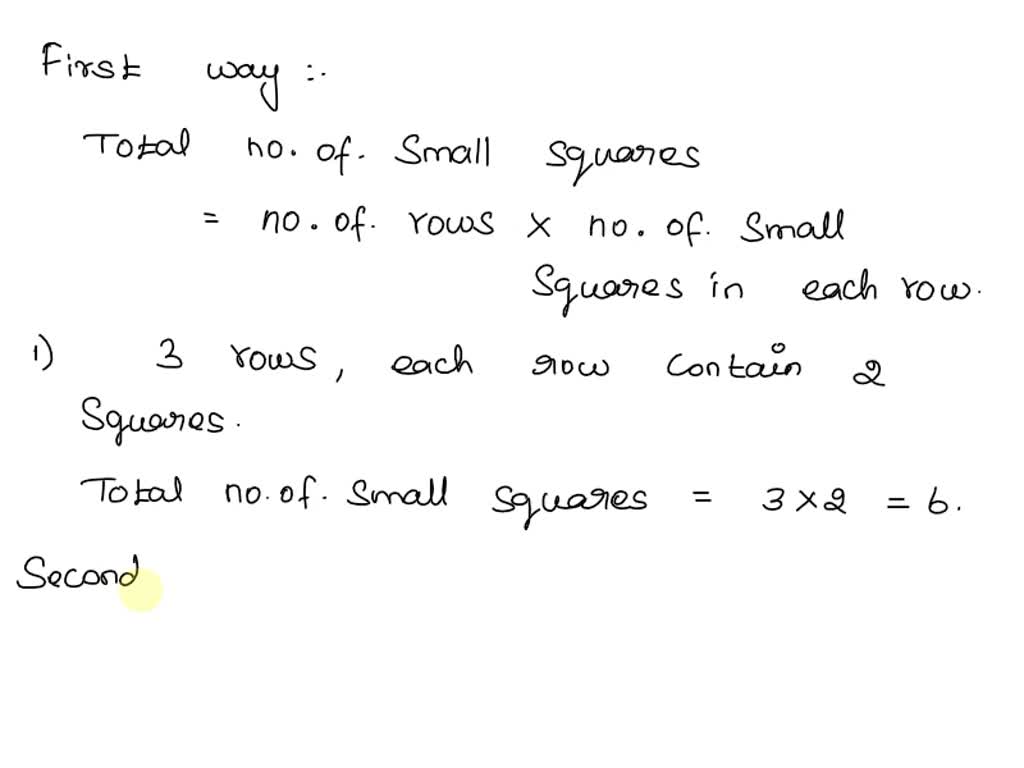 First way :.
Total no. of. Small squares
= no. of. rows × no. of. Small
Squares in each row.
1) 3 rows, each row contain 2
Squares.
Total no. of. Small squares = 3×2 = 6.
Second